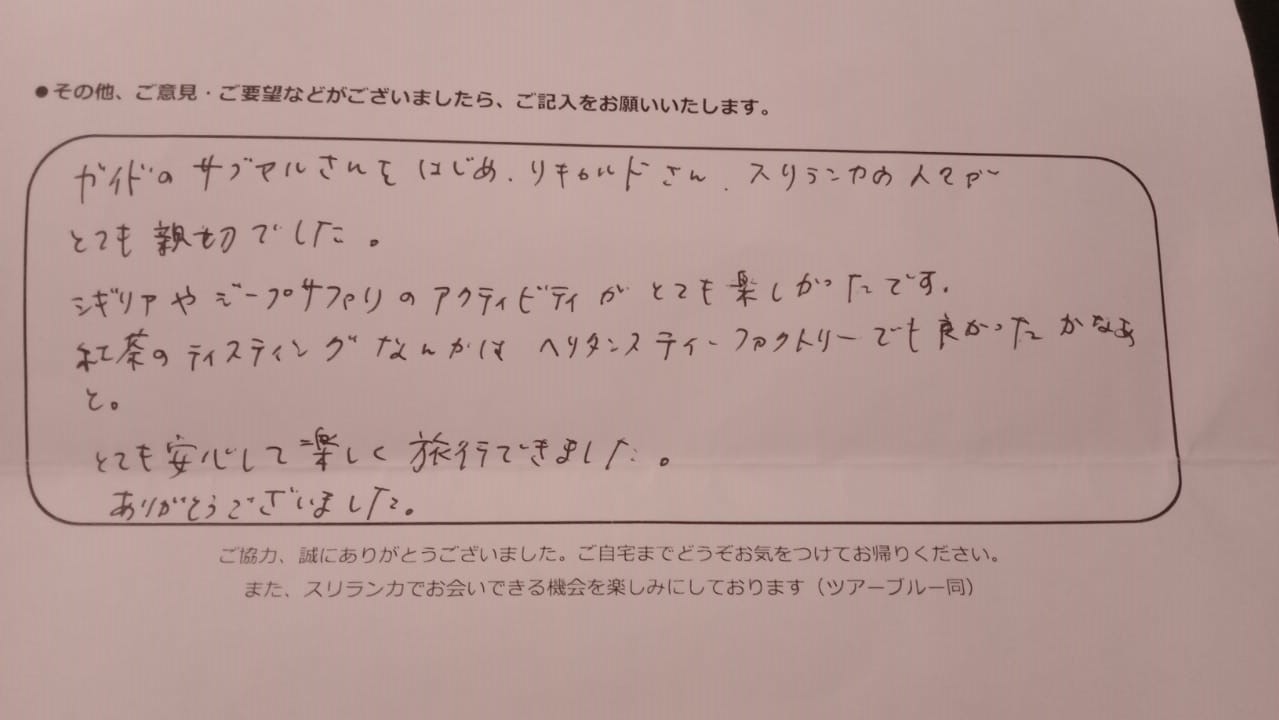 ●その他、ご意見・ご要望などがございましたら、ご記入をお願いいたします。
ガイドの サブマルさんをはじめ、リキルドさん、スリランカの人々が
とても親切でした。
シギリアやジープサファリのアクティビティがとても楽しかったです。
紅茶のティスティングなんかは ヘリタンスティーファクトリーでも良かったかなあ
と。
とても安心して楽しく旅行できました。
ありがとうございました。
ご協力、誠にありがとうございました。ご自宅までどうぞお気をつけてお帰りください。
また、スリランカでお会いできる機会を楽しみにしております（ツアーブルー同）